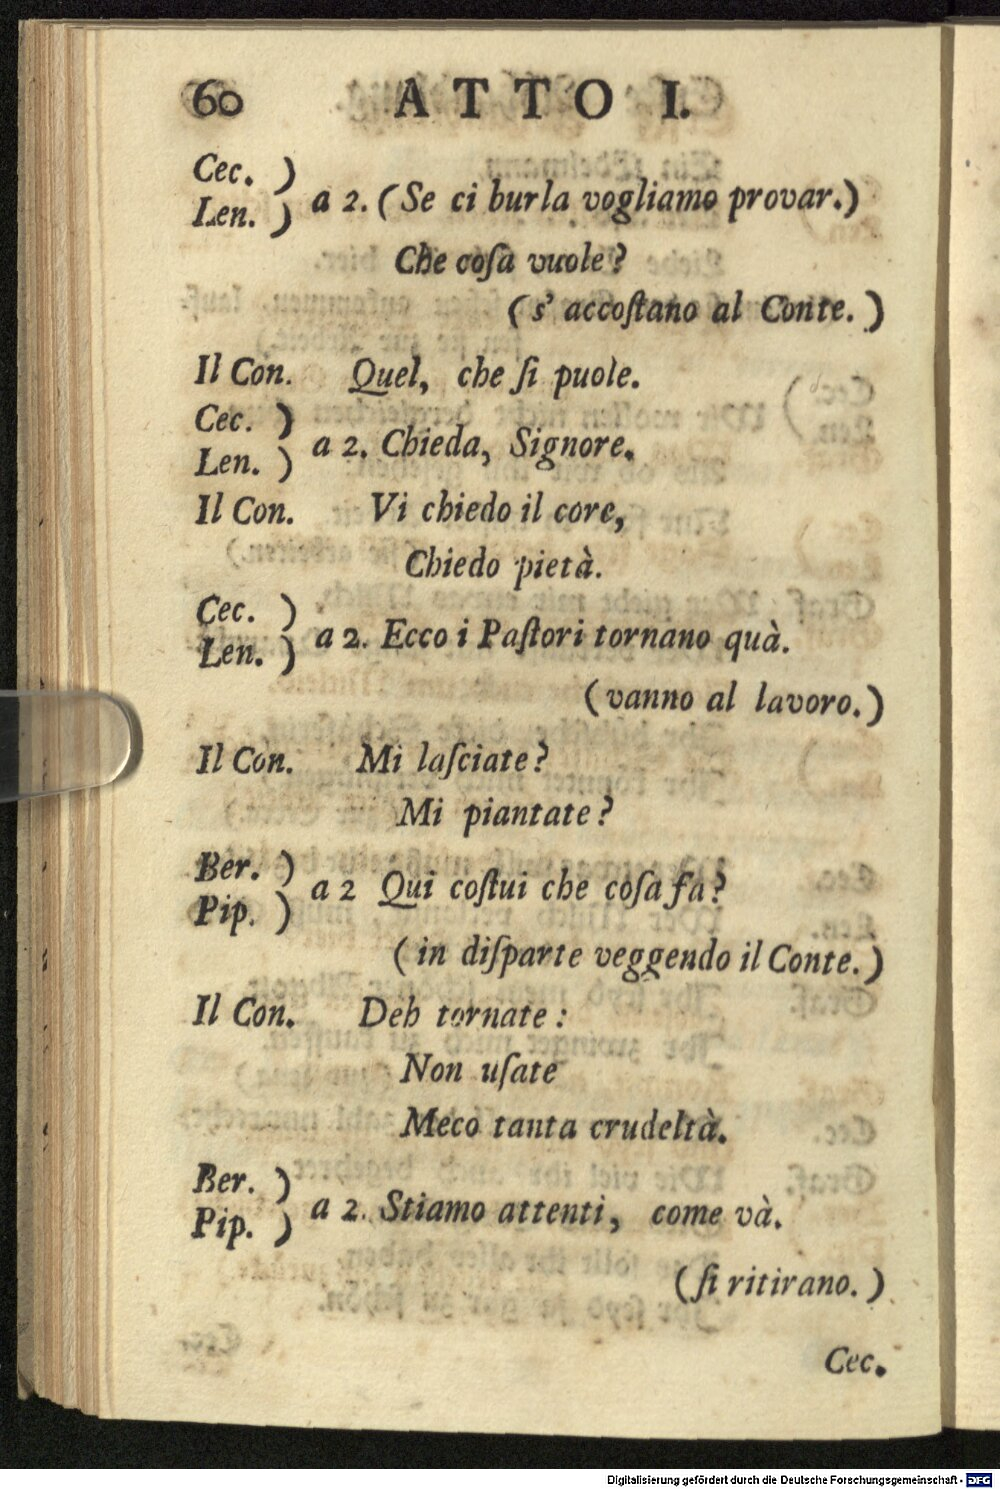 60 ATTO I.
Cec. )
Len. ) a 2. (Se ci burla vogliamo provar.)
Che coſa vuole?
(s' accoſtano al Conte.)
Il Con. Quel, che ſi puole.
Cec. )
Len. ) a 2. Chieda, Signore.
Il Con. Vi chiedo il core,
Chiedo pietà.
Cec. )
Len. ) a 2. Ecco i Paſtori tornano quà.
(vanno al lavoro.)
Il Con. Mi laſciate?
Mi piantate?
Ber. )
Pip. ) a 2 Qui coſtui che coſa fa?
(in diſparte veggendo il Conte.)
Il Con. Deh tornate:
Non uſate
Meco tanta crudeltà.
Ber. )
Pip. ) a 2. Stiamo attenti, come và.
(ſi ritirano.)
Cec.
Digitalisierung gefördert durch die Deutsche Forschungsgemeinschaft - DFG